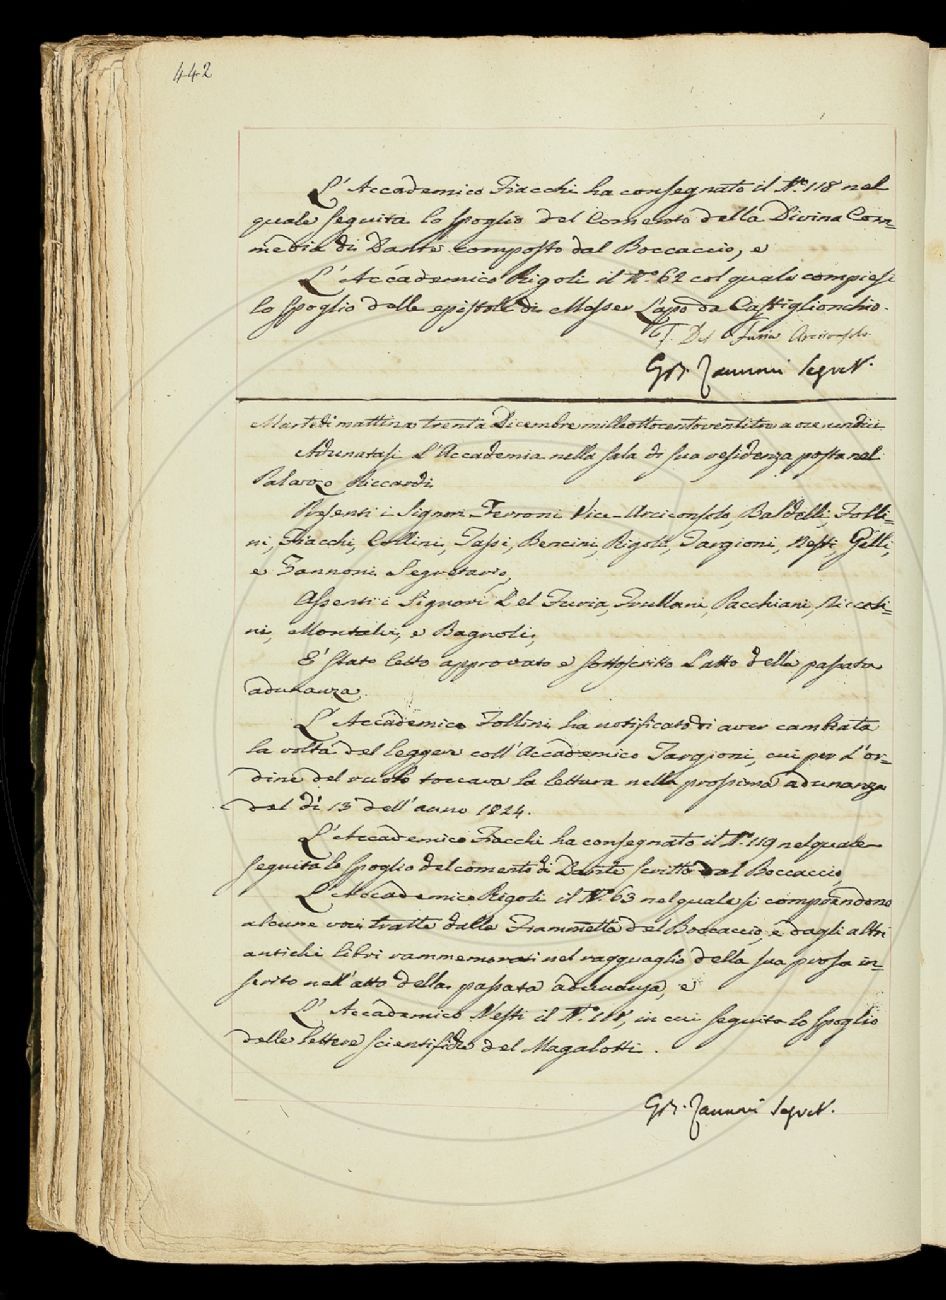 442
L'Accademico Fiacchi ha consegnato il N.° 118 nel
quale seguita lo spoglio del Comento della Divina Com=
media di Dante composto dal Boccaccio, e
L'Accademico Rigoli il N.° 62 col quale compiesi
lo spoglio delle epistole di Messer Lapo da Castiglionchio.
F. Del Furia Arciconsolo
Gio. B. Zannoni Segret.
Martedì mattina trenta Dicembre milleottocentoventitre a ore undici
Adunatasi L'Accademia nella sala di sua residenza posta nel
Palazzo Riccardi
Presenti i Signori Ferroni Vice-Arciconsolo, Baldelli, Folli=
ni, Fiacchi, Collini, Tassi, Bencini, Rigoli, Targioni, Nesti, Gelli,
e Zannoni Segretario,
Assenti i Signori Del Furia, Frullani, Pacchiani, Niccoli=
ni, Montalvi, e Bagnoli,
E' stato letto approvato e sottoscritto l'atto della passata
adunanza.
L'Accademico Follini ha notificato di aver cambiata
la volta del leggere coll'Accademico Targioni, cui per l'or=
dine del ruolo toccava la lettura nella prossima adunanza
del dì 13 dell'anno 1824.
L'Accademico Fiacchi ha consegnato il N.° 119 nel quale
seguita lo spoglio del comento di Dante scritto dal Boccaccio,
L'Accademico Rigoli il N.° 63 nel quale si comprendono
alcune voci tratte dalla Fiammetta del Boccaccio, e dagli altri
antichi libri rammemorati nel ragguaglio della sua prosa in=
serito nell'atto della passata adunanza, e
L'Accademico Nesti il N.° in cui seguita lo spoglio
delle lettere scientifiche del Magalotti.
Gio. B. Zannoni Segret.